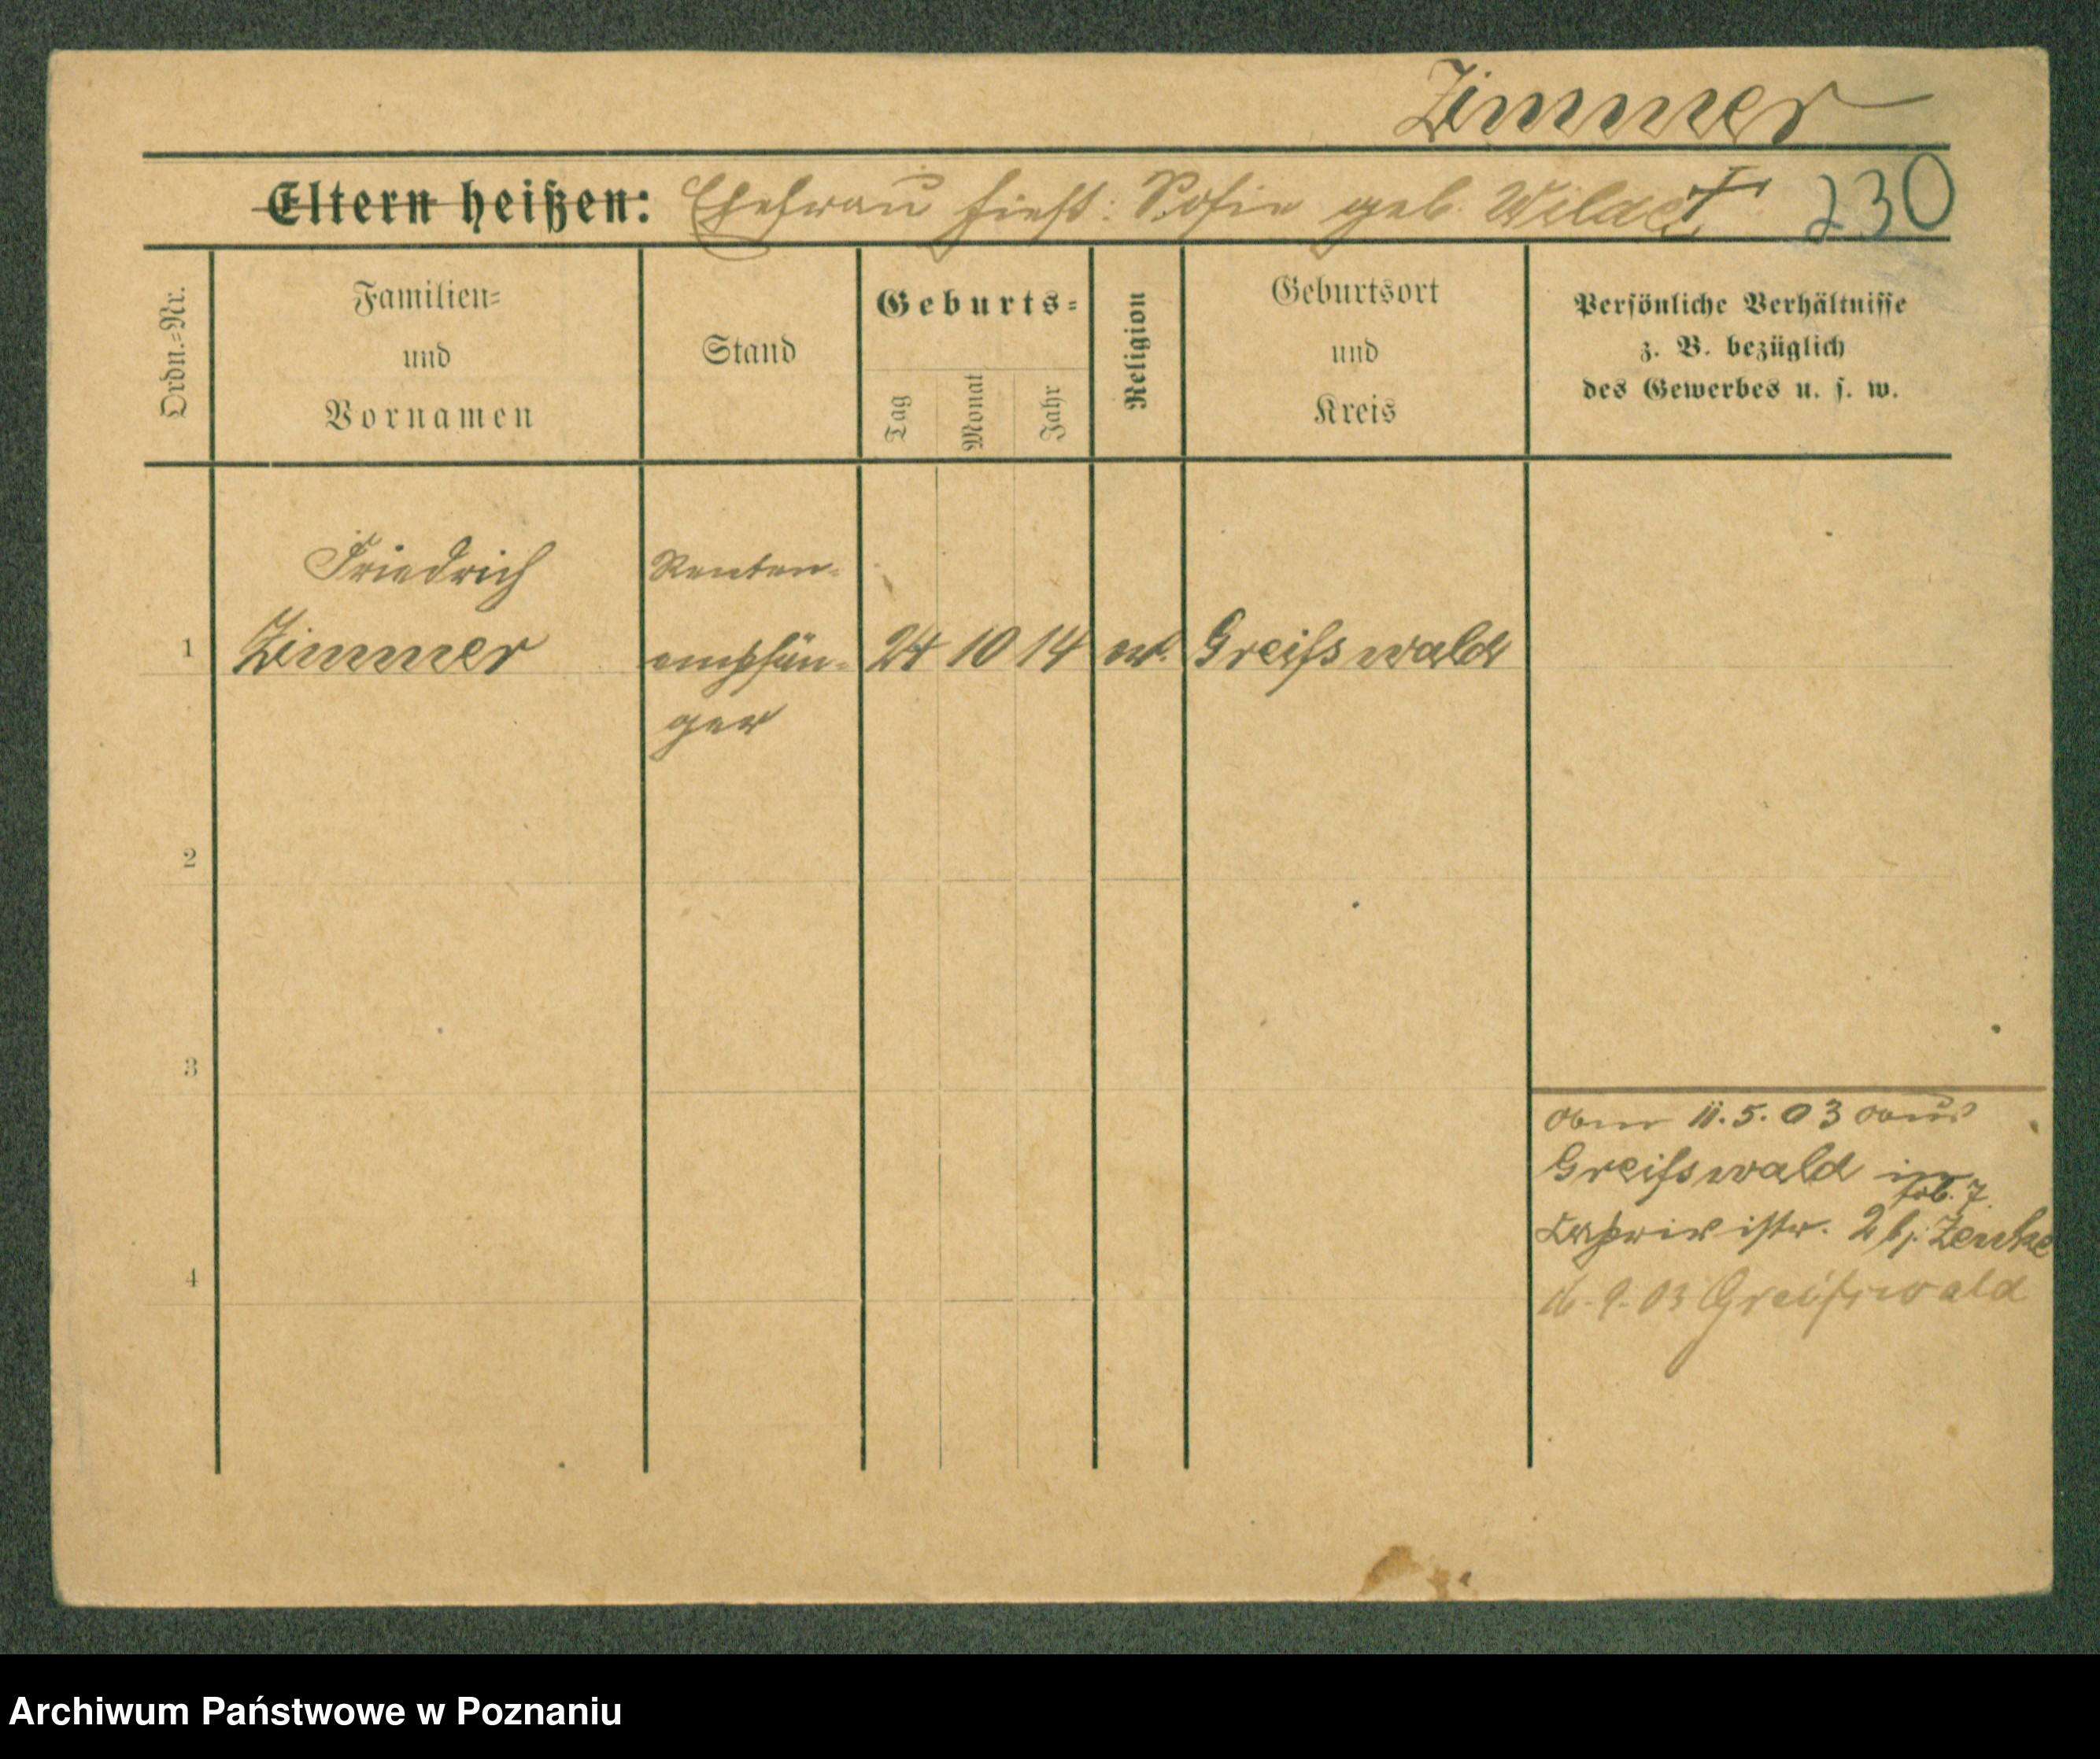 Zimmer
Eltern heißen: Ehefrau hieß: Sofie geb. 230
Ordn.=Nr.
Familien=
und
Vornamen
Stand
Geburts=
Tag
Monat
Jahr
Religion
Geburtsort
und
Kreis
Persönliche Verhältnisse
z. B. bezüglich
des Gewerbes u. s. w.
Friedrich
Zimmer
Renten=
empfän=
ger
1
24 10 14
Greifswald
2
3
4
11.5.03 aus
Greifswald in
7
2 bj. Zenke
16.9.03 Greifswald
Archiwum Państwowe w Poznaniu